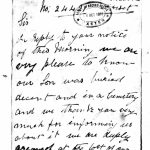 No. 2443
Sir
In Reply to your notice
of this Morning, we are
very pleased to know
our Son was buried
decent and in a Cemetery
and we thank you very
much for informing us
about it we are deeply
at the loss of our